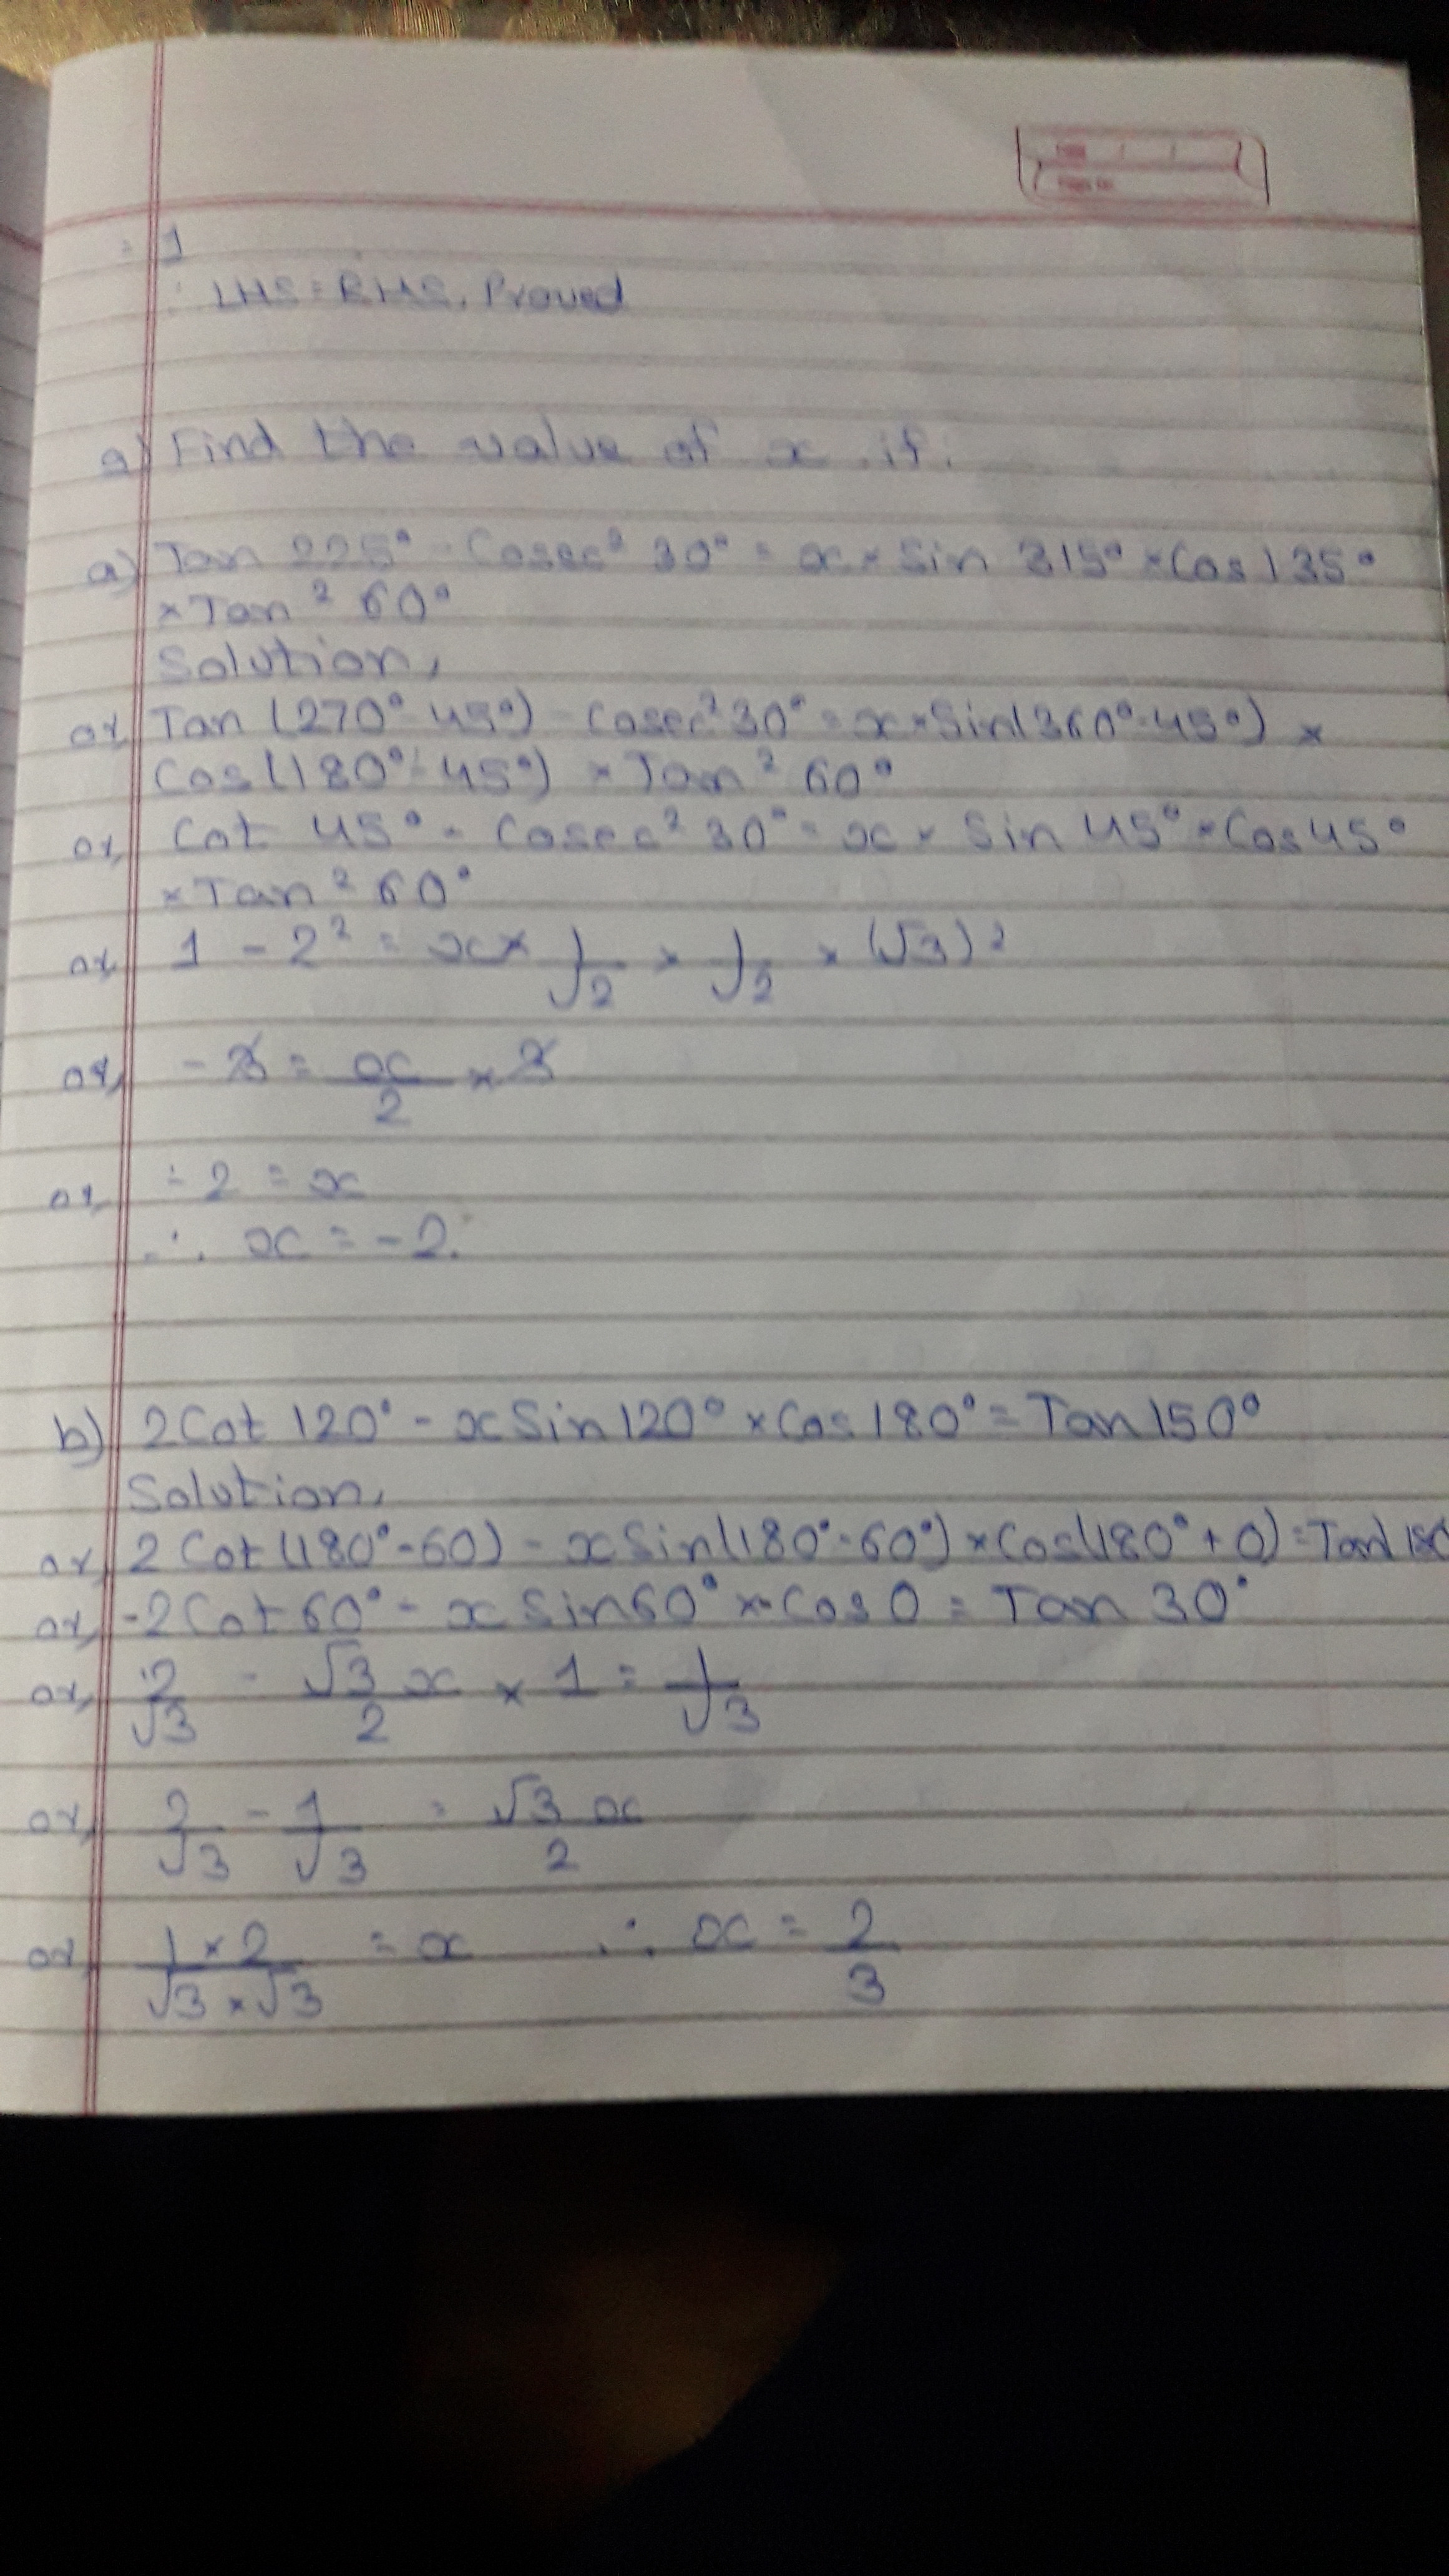 = 1
∴ LHS = RHS, Proved
9) Find the value of x if:
a) Tan 225° - Cosec² 30° = x × Sin 315° × Cos 135°
× Tan² 60°
Solution,
or, Tan (270° - 45°) - Cosec² 30° = x × Sin(360° - 45°) ×
Cos (180° - 45°) × Tan² 60°
or, Cot 45° - Cosec² 30° = x × Sin 45° × Cos 45°
× Tan² 60°
or, 1 - 2² = x × 1/√2 × 1/√2 × (√3)²
or, -3 = x/2 × 3
or, -2 = x
∴ x = -2.
b) 2 Cot 120° - x Sin 120° × Cos 180° = Tan 150°
Solution,
or, 2 Cot (180° - 60) - x Sin (180° - 60°) × Cos (180° + 0) = Tan 150
or, -2 Cot 60° - x Sin 60° × - Cos 0 = Tan 30°
or, 2/√3 - √3x/2 × 1 = 1/√3
or, 2/√3 - 1/√3 = √3x/2
or, 1 × 2/√3 × √3 = x ∴ x = 2/3